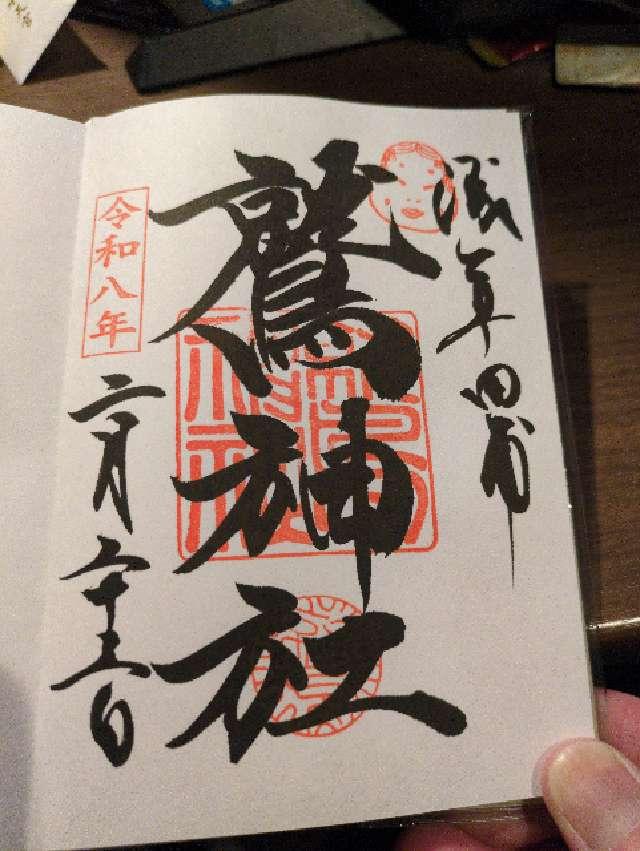 浅草田甫
鷲神社
令和八年
二月二十三日